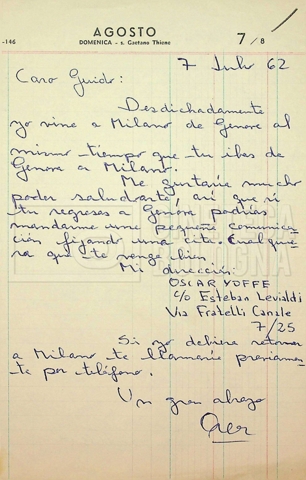 -146
AGOSTO
DOMENICA - s. Gaetano Thiene
7/8
7 Julio 62
Caro Guido:
Desdichadamente
yo vine a Milano de Genova al
mismo tiempo que tu ibas de
Genova a Milano.
Me gustaria mucho
poder saludarte, asi que si
tu regresas a Genova podrias
mandarme una pequeña comunica-
ción fijando una cita. Cualquie-
ra que te venga bien.
Mi dirección:
OSCAR YOFFE
c/o Esteban Levialdi
Via Fratelli Canale
7/25
Si yo debiera retornar
a Milano te llamaria previamen-
te por teléfono.
Un gran abrazo